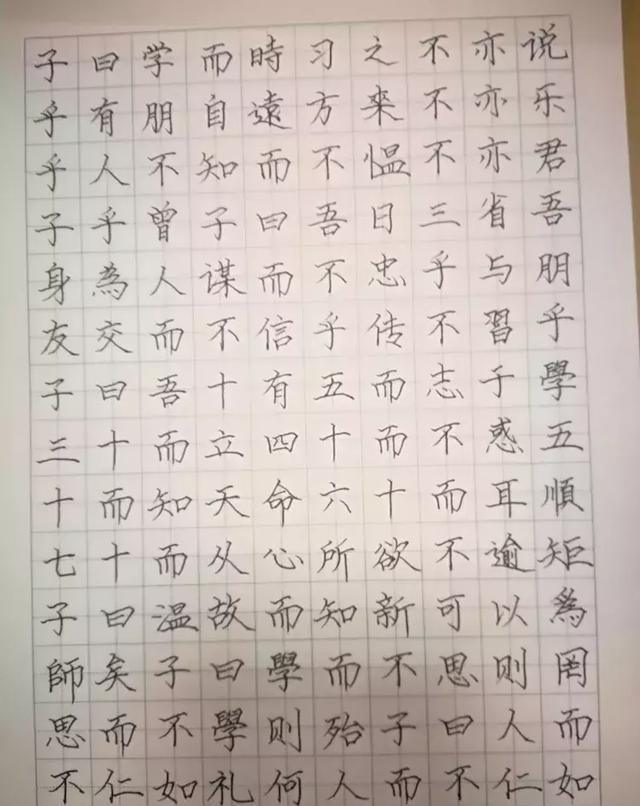 子曰学而時习之不亦说
乎有朋自遠方来不亦乐
乎人不知而不愠不亦君
子乎曾子曰吾日三省吾
身為人谋而不忠乎与朋
友交而不信乎传不習乎
子曰吾十有五而志于學
三十而立四十而不惑五
十而知天命六十而耳順
七十而从心所欲不逾矩
子曰温故而知新可以為
師矣子曰學而不思则罔
思而不學则殆子曰人而
不仁如礼何人而不仁如